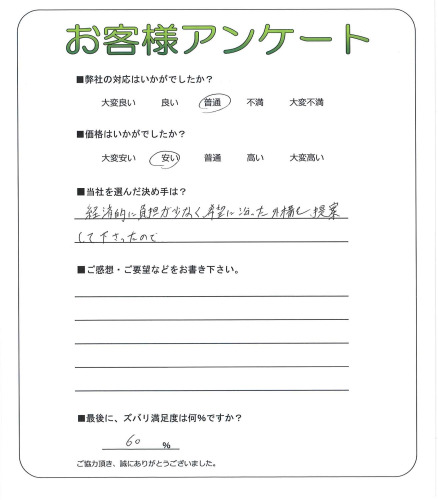 お客様アンケート
■弊社の対応はいかがでしたか？
大変良い 良い 普通 不満 大変不満
■価格はいかがでしたか？
大変安い 安い 普通 高い 大変高い
■当社を選んだ決め手は？
経済的に負担が少なく、希望に沿った外構を提案
して下さったので
■ご感想・ご要望などをお書き下さい。
■最後に、ズバリ満足度は何％ですか？
60 %
ご協力頂き、誠にありがとうございました。